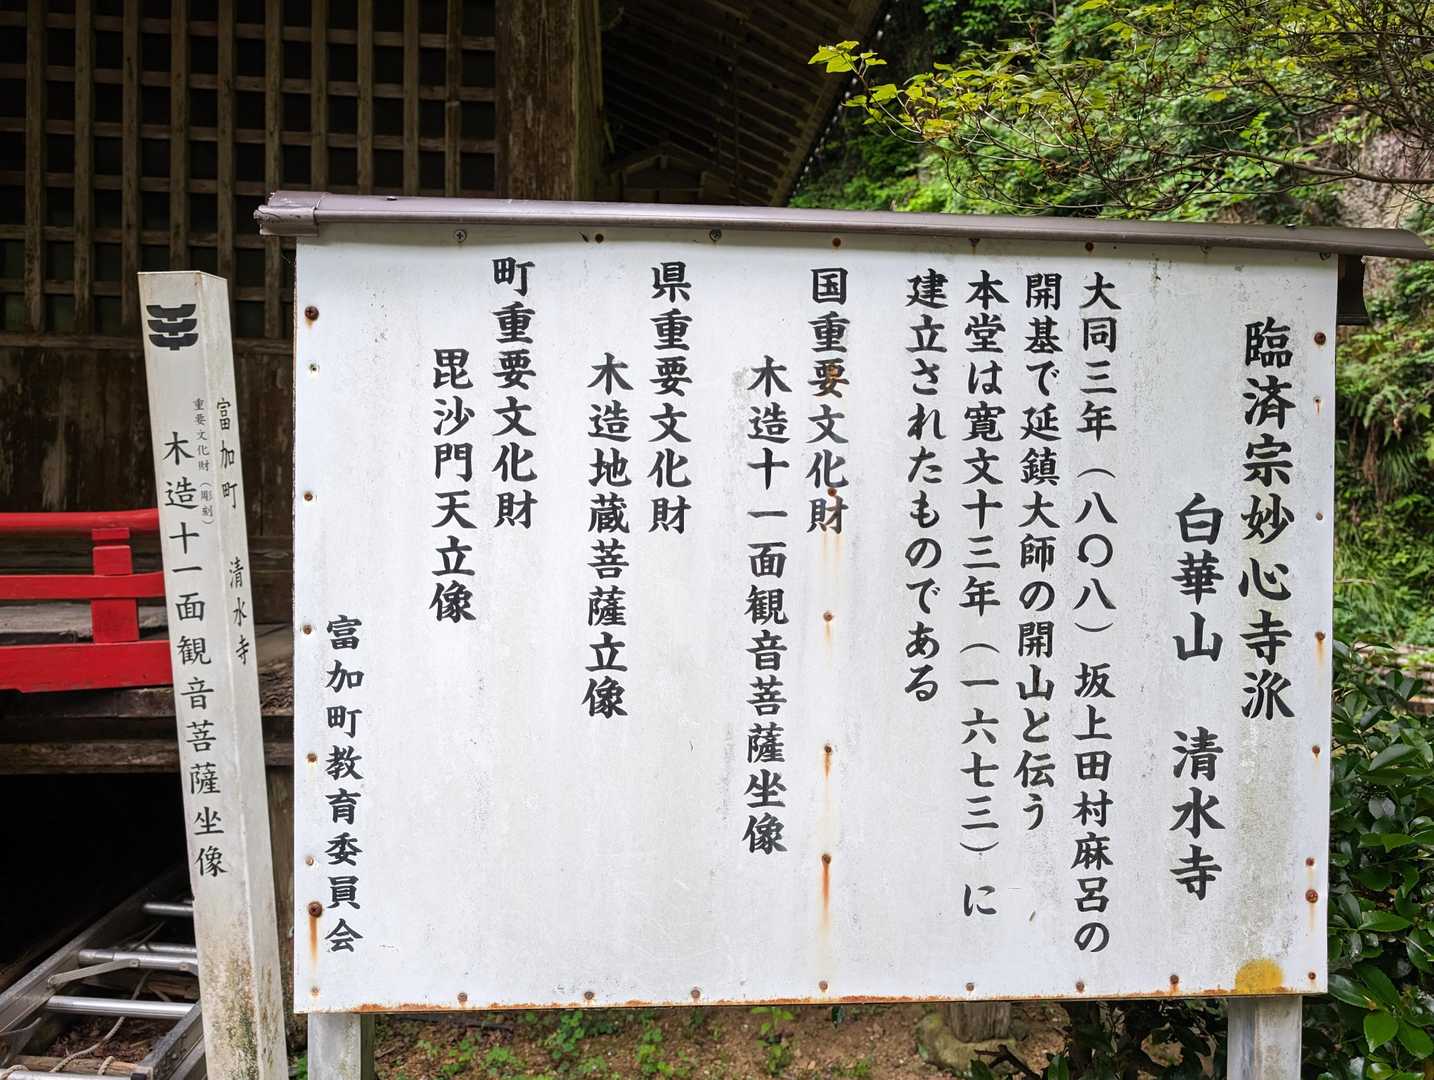 臨済宗妙心寺派
白華山 清水寺
大同三年（八〇八）坂上田村麻呂の
開基で延鎮大師の開山と伝う
本堂は寛文十三年（一六七三）に
建立されたものである
国重要文化財
木造十一面観音菩薩坐像
県重要文化財
木造地蔵菩薩立像
町重要文化財
毘沙門天立像
富加町教育委員会
富加町 清水寺
重要文化財（彫刻）
木造十一面観音菩薩坐像